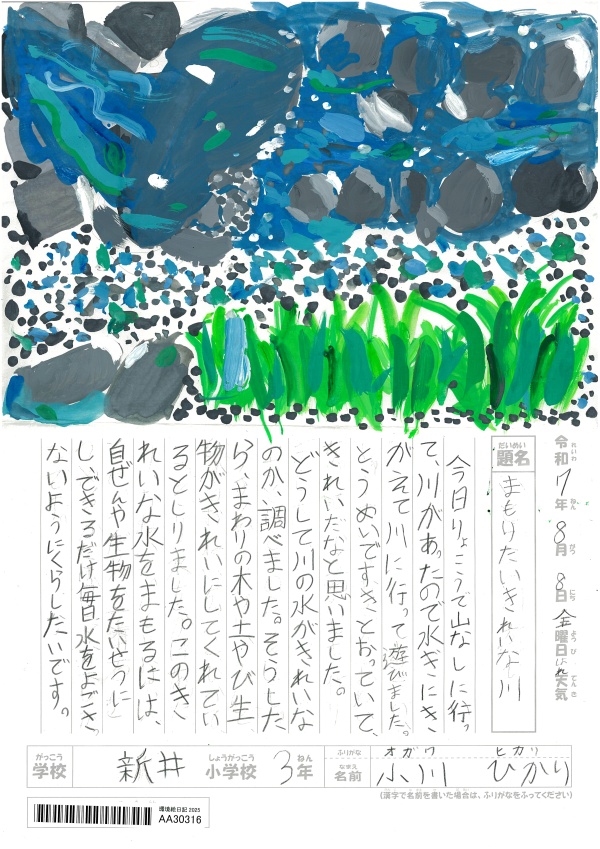 令和7年8月8日金曜日はれ天気
れいわ ねん がつ にち ようび てんき
だいめい
題名
まもりたいきれいな川
今日りょこうで山なしに行っ
て、川があったので水ぎにき
がえて川に行って遊びました。
とうめいですきとおっていて、
きれいだなと思いました。
どうして川の水がきれいな
のか、調べました。そうした
ら、まわりの木や土やび生
物がきれいにしてくれてい
るとしりました。このき
れいな水をまもるには、
自ぜんや生物をたいせつに
し、できるだけ毎日水をよごさ
ないようにくらしたいです。
がっこう しょうがっこう ねん
学校 新井 小学校 3年
ふりがな オガワ ヒカリ
なまえ
名前 小川 ひかり
(漢字で名前を書いた場合は、ふりがなをふってください)
環境絵日記 2025
AA30316